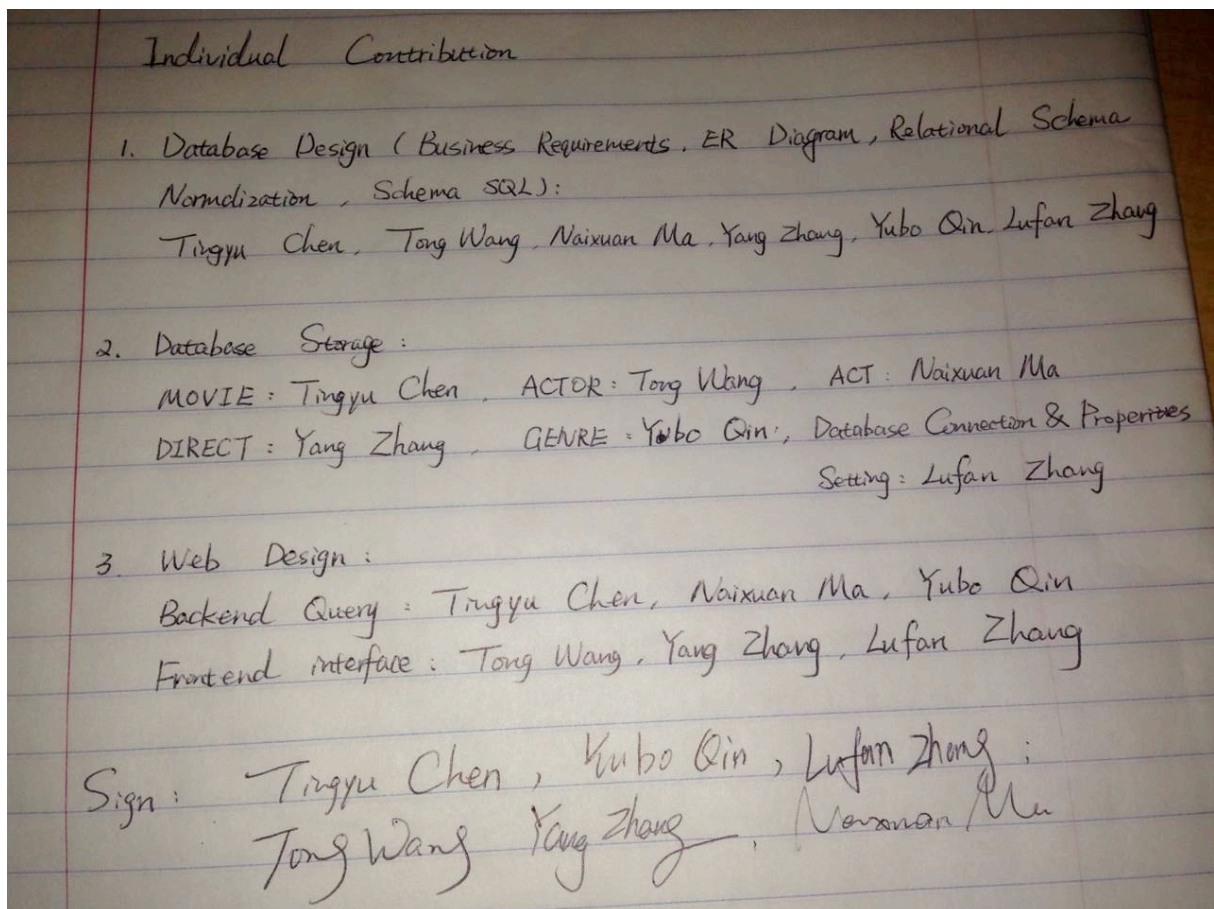 Individual Contribution
1. Database Design (Business Requirements, ER Diagram, Relational Schema
Normalization, Schema SQL):
Tingyu Chen, Tong Wang, Naixuan Ma, Yang Zhang, Yubo Qin, Lufan Zhang
2. Database Storage:
MOVIE: Tingyu Chen, ACTOR: Tong Wang, ACT: Naixuan Ma
DIRECT: Yang Zhang, GENRE: Yubo Qin, Database Connection & Properties
Setting: Lufan Zhang
3. Web Design:
Backend Query: Tingyu Chen, Naixuan Ma, Yubo Qin
Frontend interface: Tong Wang, Yang Zhang, Lufan Zhang
Sign: Tingyu Chen, Yubo Qin, Lufan Zhang;
Tong Wang Yang Zhang, Naixuan Ma